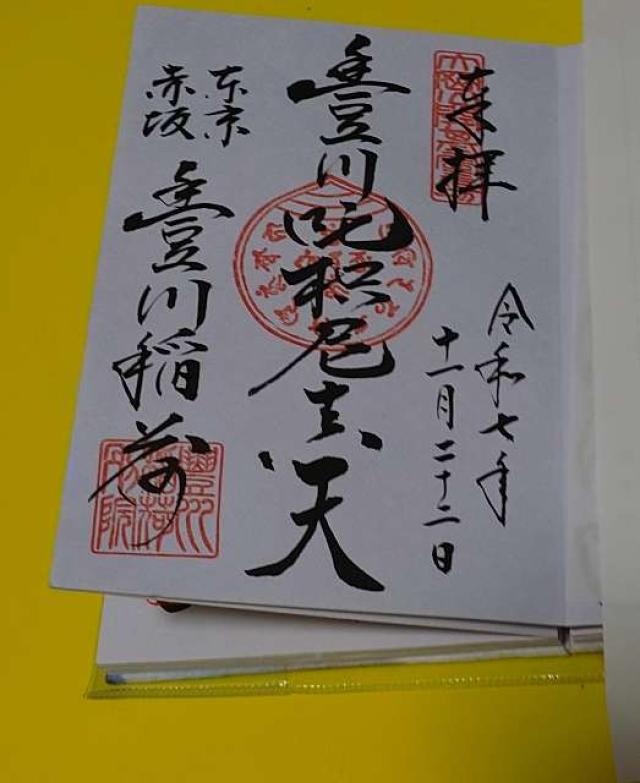 奉拝
令和七年
十一月二十二日
豊川吒枳尼真天
東京
赤坂
豊川稲荷